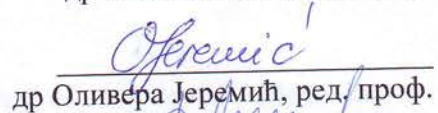 OJeremić
др Оливера Јеремић, ред. проф.